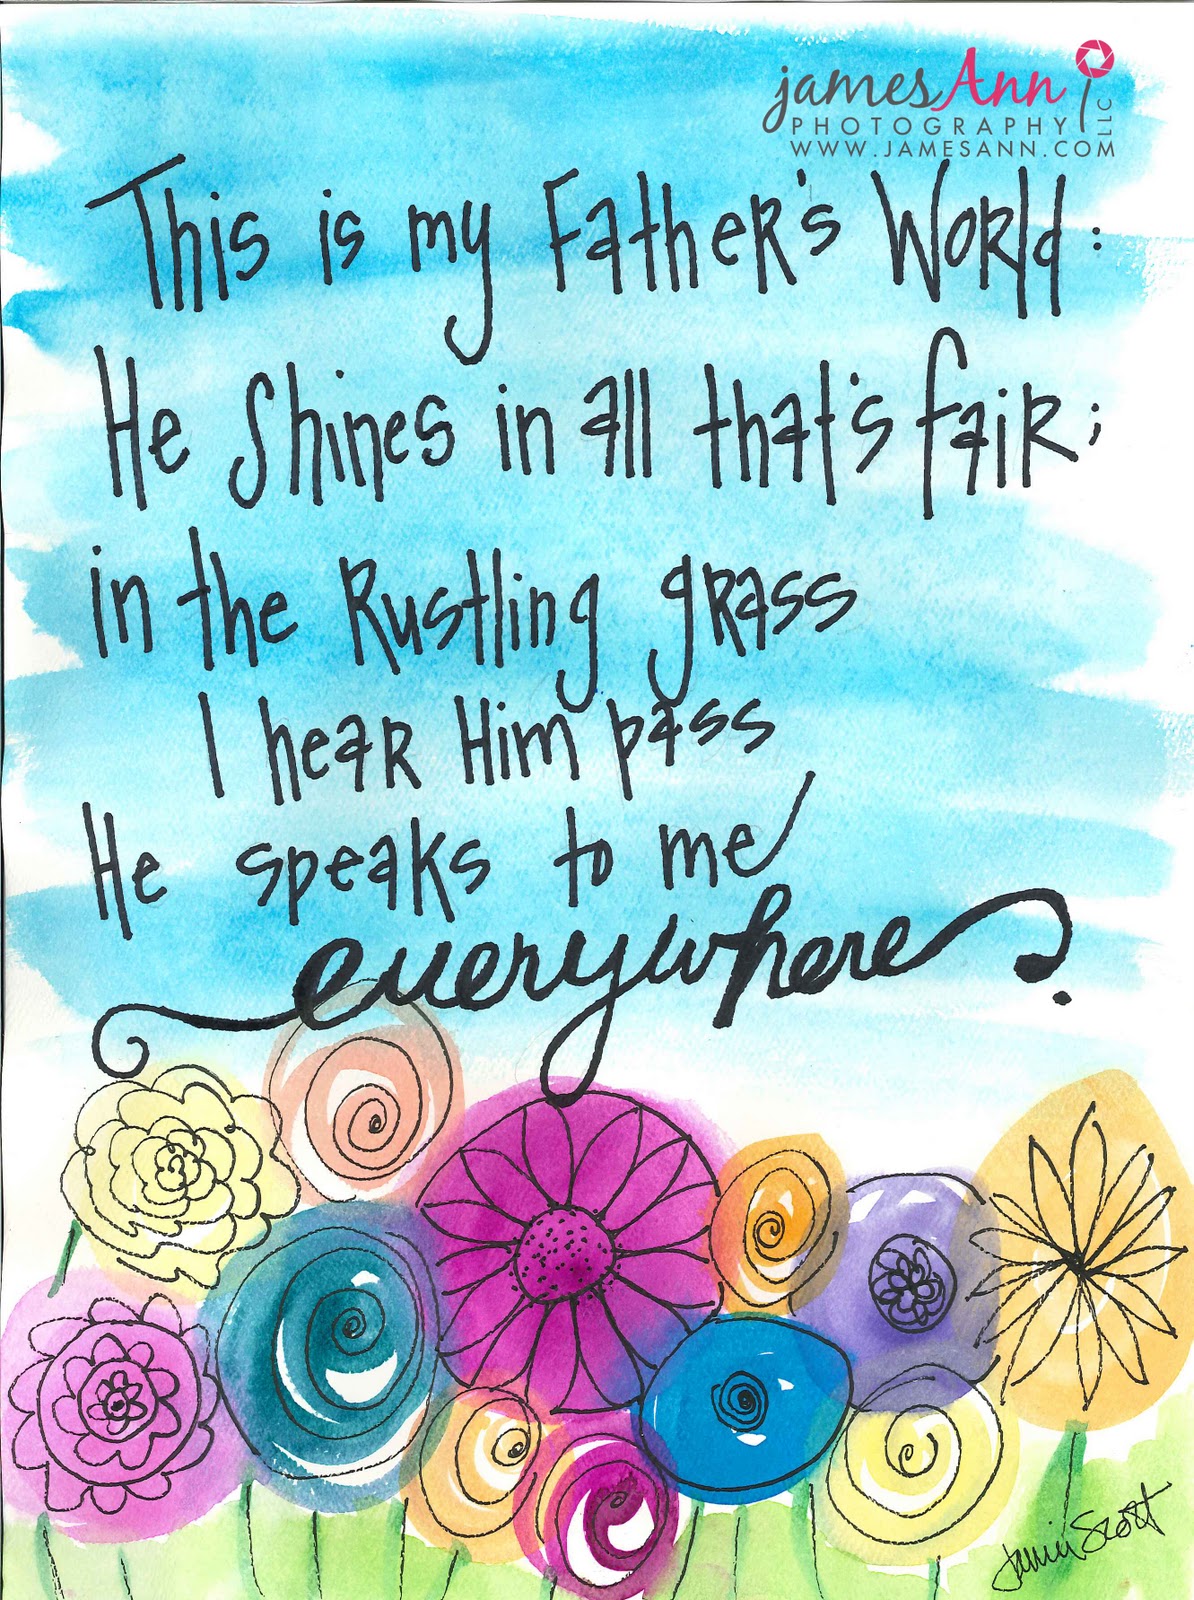 jamesAnn
PHOTOGRAPHY LLC
WWW.JAMESANN.COM
This is my Father's World:
He Shines in all that's fair;
in the Rustling grass
I hear Him pass
He speaks to me
everywhere.
Jamie Scott